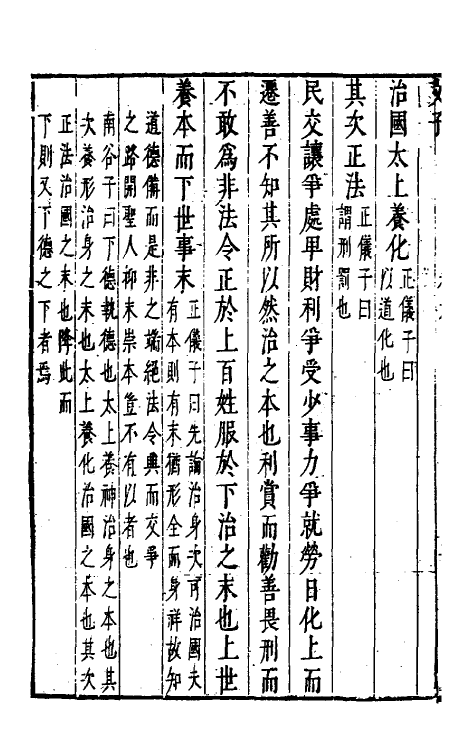 文子
治國太上養化正儀子曰
以道化也
其次正法正儀子曰
謂刑罰也
民交讓爭處卑財利爭受少事力爭就勞日化上而
遷善不知其所以然治之本也利賞而勸善畏刑而
不敢為非法令正於上百姓服於下治之末也上世
養本而下世事末正儀子曰先論治身次可治國夫
有本則有末猶形全而身祥故知
道德備而是非之端絕法令典而交爭
之路開聖人抑末崇本豈不有以者也
南谷子曰下德執德也太上養神治身之本也其
次養形治身之末也太上養化治國之本也其次
正法治國之末也降此而
下則又下德之下者焉